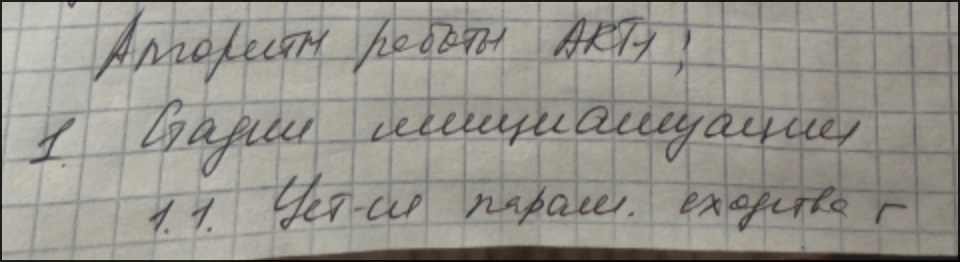 Алгоритм работы АКТ1;
1. Стадии инициализации
1.1. Уст-ся парам. сходства r